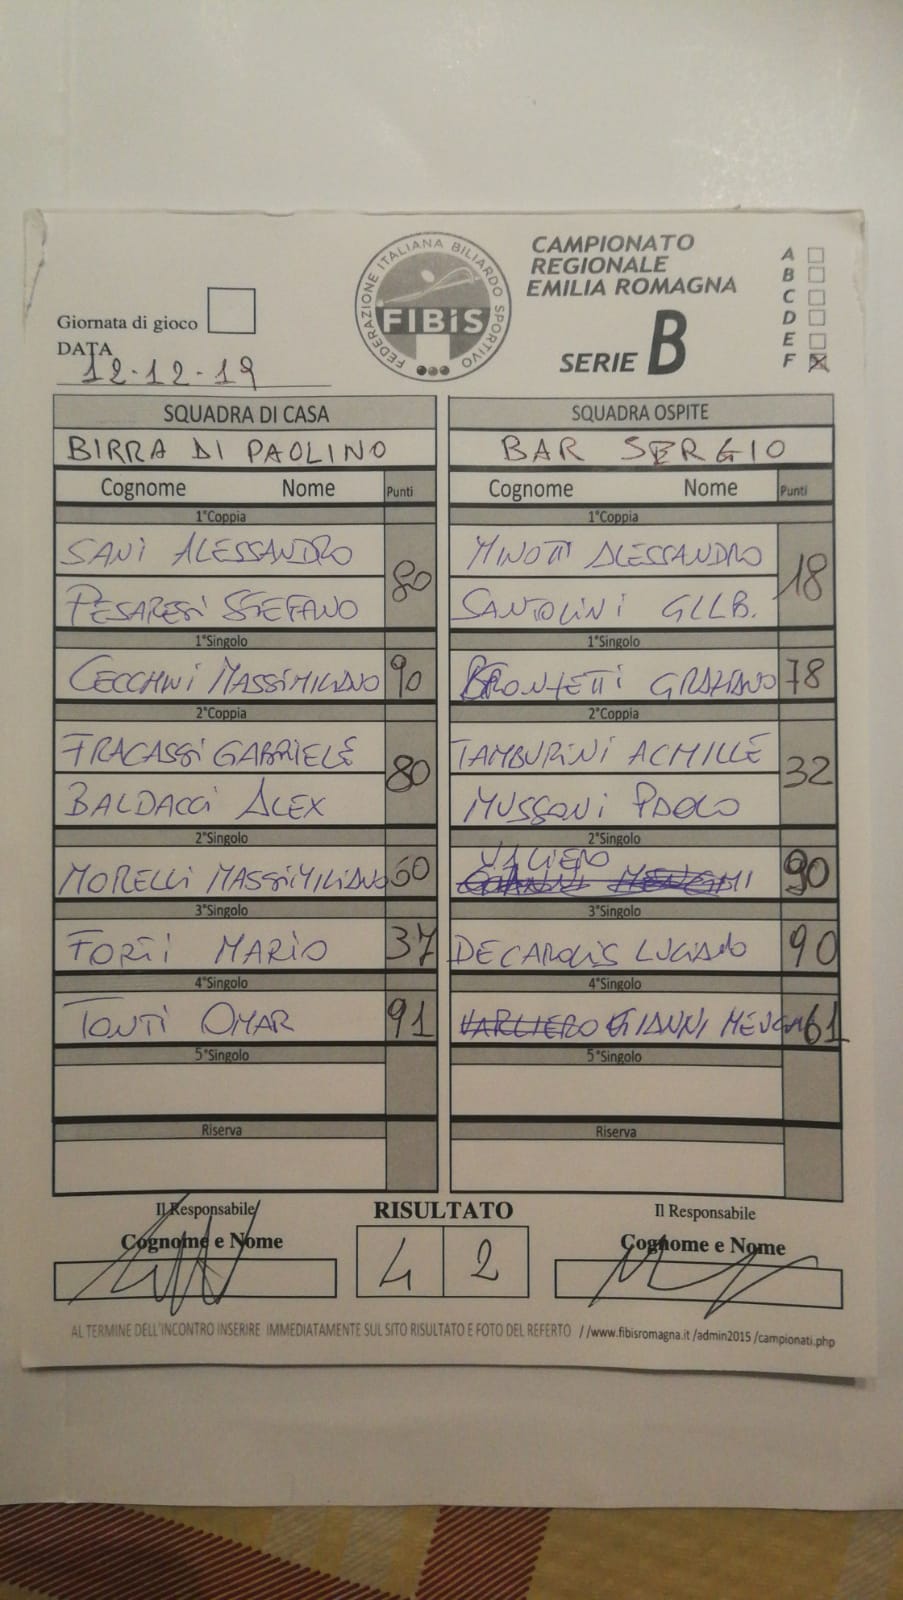 FEDERAZIONE ITALIANA BILIARDO SPORTIVO
FIBiS
CAMPIONATO
REGIONALE
EMILIA ROMAGNA
SERIE B
A
B
C
D
E
F
Giornata di gioco
DATA
12-12-19
SQUADRA DI CASA
BIRRA DI PAOLINO
Cognome Nome Punti
1°Coppia
SANI ALESSANDRO
80
PESARESI STEFANO
1°Singolo
CECCHINI MASSIMILIANO 90
2°Coppia
FRACASSI GABRIELE
80
BALDACCI ALEX
2°Singolo
MORELLI MASSIMILIANO 60
3°Singolo
FORTI MARIO 37
4°Singolo
TONTI OMAR 91
5°Singolo
Riserva
SQUADRA OSPITE
BAR SERGIO
Cognome Nome Punti
1°Coppia
MINOTTI ALESSANDRO
18
SANTOLINI GLLB.
1°Singolo
BRONZETTI GRAZIANO 78
2°Coppia
TAMBURINI ACHILLE
32
MUSSONI PAOLO
2°Singolo
VALIERO
90
3°Singolo
DECAROLIS LUCIANO 90
4°Singolo
VARLIERO GIANNI 61
5°Singolo
Riserva
Il Responsabile
Cognome e Nome
RISULTATO
4 2
Il Responsabile
Cognome e Nome
AL TERMINE DELL'INCONTRO INSERIRE IMMEDIATAMENTE SUL SITO RISULTATO E FOTO DEL REFERTO //www.fibisromagna.it /admin2015 /campionati.php